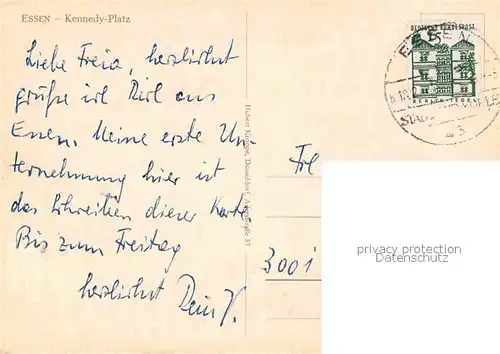 ESSEN — Kennedy-Platz
Liebe Freia, herzlichst
grüße ich Dich aus
Essen. Meine erste Un-
ternehmung hier ist
das Schreiben dieser Karte
Bis zum Freitag
herzlichst Dein
Frl
3001
DEUTSCHE BUNDESPOST
BERLIN-TEGEL
ESSEN
Düsseldorf,
57
privacy protection
Datenschutz